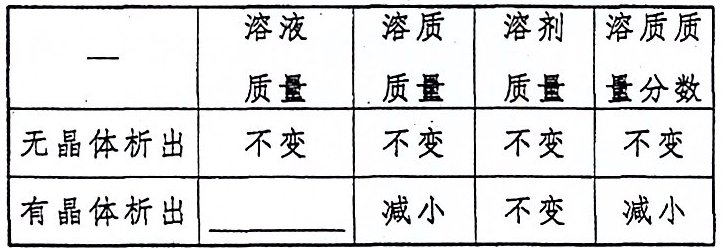 — 溶液质量 溶质质量 溶剂质量 溶质质量分数
无晶体析出 不变 不变 不变 不变
有晶体析出 ________ 减小 不变 减小